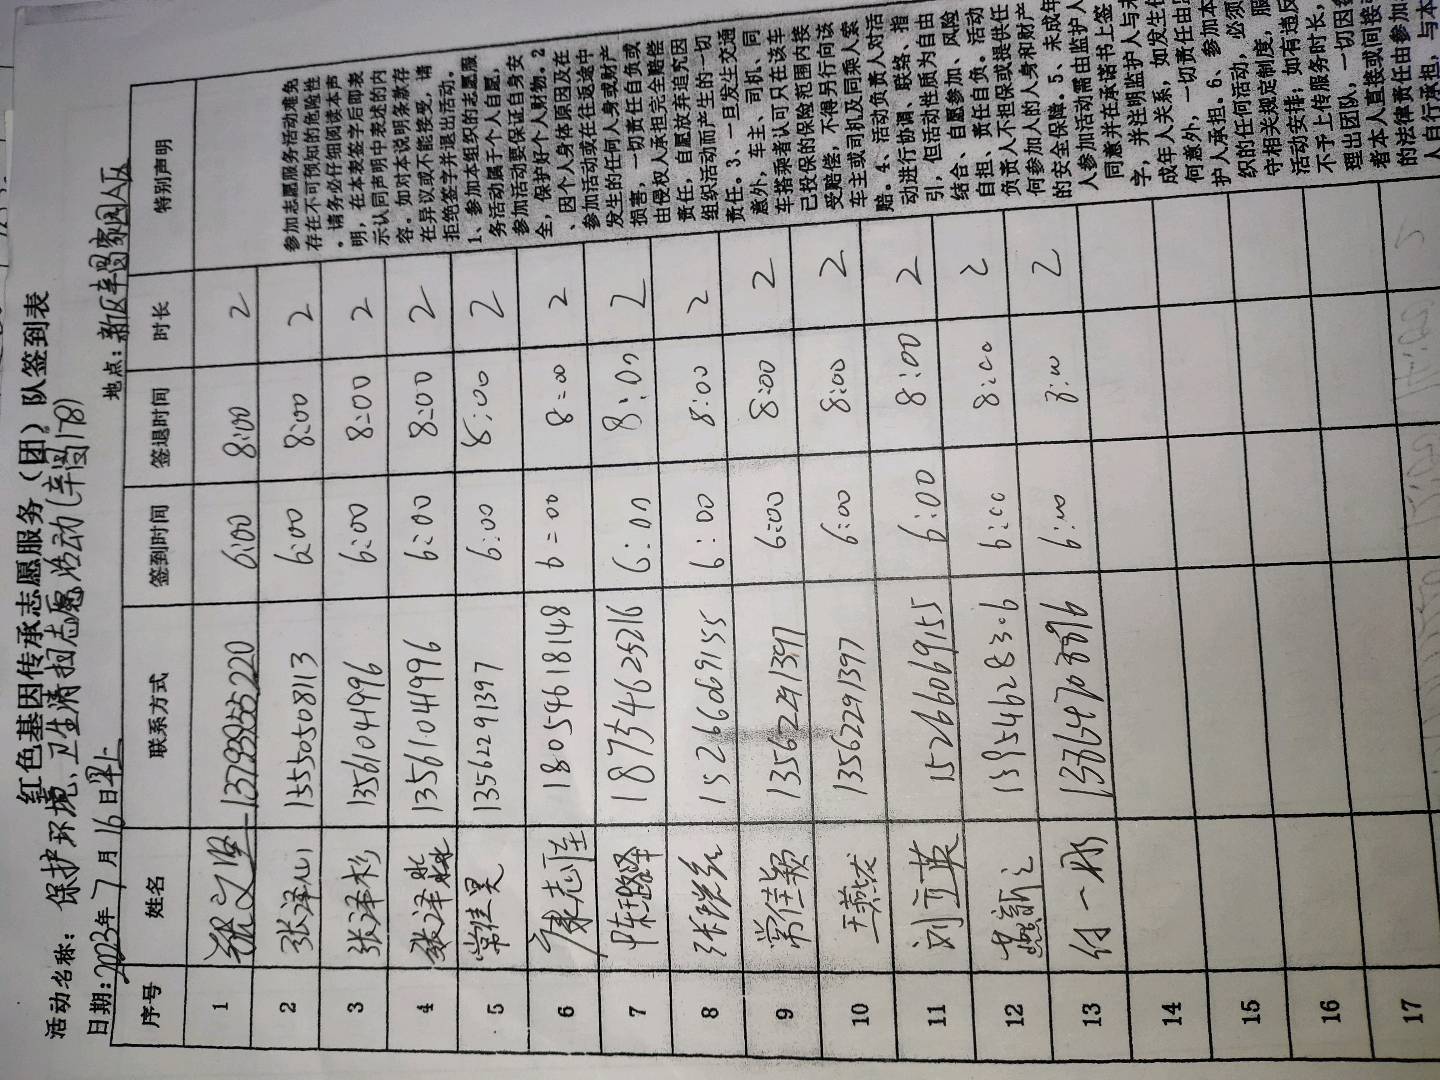 红色基因传承志愿服务（团）队签到表
活动名称：保护环境、卫生清扫志愿活动(辛店178)
日期：2023年7月16日早上 地点：
序号 姓名 联系方式 签到时间 签退时间 时长 特别声明
1 张文坚 6:00 8:00 2
2 张泽心 15550508113 6:00 8:00 2
3 张泽杉 13561041996 6:00 8:00 2
4 张泽淼 13561041996 6:00 8:00 2
5 常佳昊 13562291397 6:00 8:00 2
6 康志江 18054618148 6:00 8:00 2
7 陈璐璐 18754625216 6:00 8:00 2
8 15266069155 6:00 8:00 2
9 常佳颖 13562291397 6:00 8:00 2
10 王燕龙 13562291397 6:00 8:00 2
11 刘立英 15266069155 6:00 8:00 2
12 15954628306 6:00 8:00 2
13 付一 6:00 8:00 2
14
15
16
17
参加志愿服务活动难免
存在不可预知的危险性
。请务必仔细阅读本声
明，在本表签字后即表
示认同声明中表述的内
容。如对本说明条款存
在异议或不能接受，请
拒绝签字并退出活动。
1、参加本组织的志愿服
务活动属于个人自愿，
参加活动要保证自身安
全，保护好个人财物。2
、因个人身体原因及在
参加活动或在往返途中
发生的任何人身或财产
损害，一切责任自负或
由侵权人承担完全赔偿
责任，自愿放弃追究因
组织活动而产生的一切
责任。3、一旦发生交通
意外，车主、司机、同
车搭乘者认可只在该车
已投保的保险范围内接
受赔偿，不得另行向该
车主或司机及同乘人索
赔。4、活动负责人对活
动进行协调、联络、指
引，但活动性质为自由
结合、自愿参加、风险
自担、责任自负。活动
负责人不担保或提供任
何参加人的人身和财产
的安全保障。5、未成年
人参加活动需由监护人
同意并在承诺书上签
字，并注明监护人与未
成年人关系，如发生任
何意外，一切责任由
护人承担。6、参加本
织的任何活动，必须
守相关规定制度，服
活动安排；如有违反
不予上传服务时长，
理出团队，一切因
者本人直接或间接
的法律责任由参加
人自行承担，与本